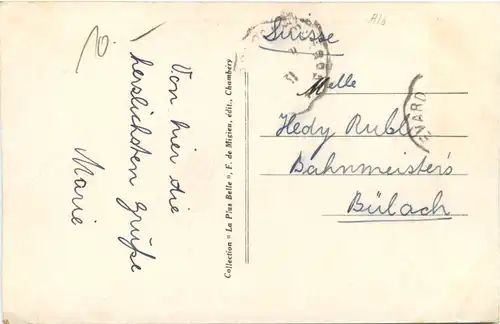 Von hier die
herzlichsten Grüße
Marie
Collection « La Plus Belle », F. de Mizieu, édit., Chambéry
Suisse
Melle
Hedy Rubli
Bahnmeister's
Bülach